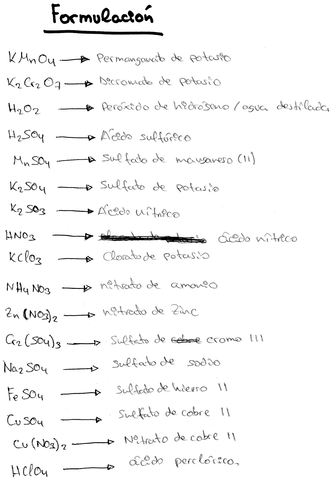 Formulación
KMnO4 → Permanganato de potasio
K2Cr2O7 → Dicromato de potasio
H2O2 → Peróxido de hidrógeno / agua destilada
H2SO4 → Ácido sulfúrico
MnSO4 → Sulfato de manganeso (II)
K2SO4 → Sulfato de potasio
K2SO3 → Ácido nítrico
HNO3 → ácido nítrico
KClO3 → Clorato de potasio
NH4NO3 → nitrato de amonio
Zn(NO3)2 → nitrato de Zinc
Cr2(SO4)3 → Sulfato cromo III
Na2SO4 → sulfato de sodio
FeSO4 → Sulfato de hierro II
CuSO4 → Sulfato de cobre II
Cu(NO3)2 → Nitrato de cobre II
HClO4 → ácido perclórico.